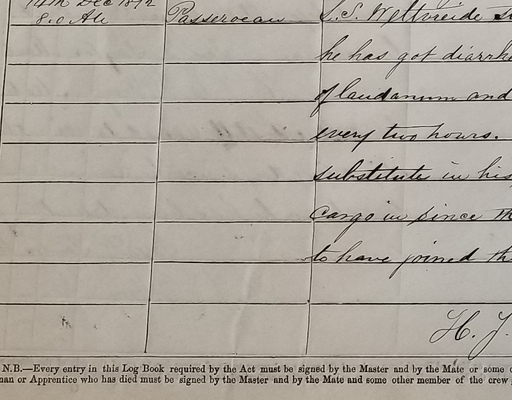 14th Dec 1872
8.0 AM Passeroean S.S. Welt
he has got diarrh
of laudanum and
every two hours.
substitute in his
Cargo in since th
to have joined th
H. J.
N.B.—Every entry in this Log Book required by the Act must be signed by the Master and by the Mate or some o
man or Apprentice who has died must be signed by the Master and by the Mate and some other member of the crew